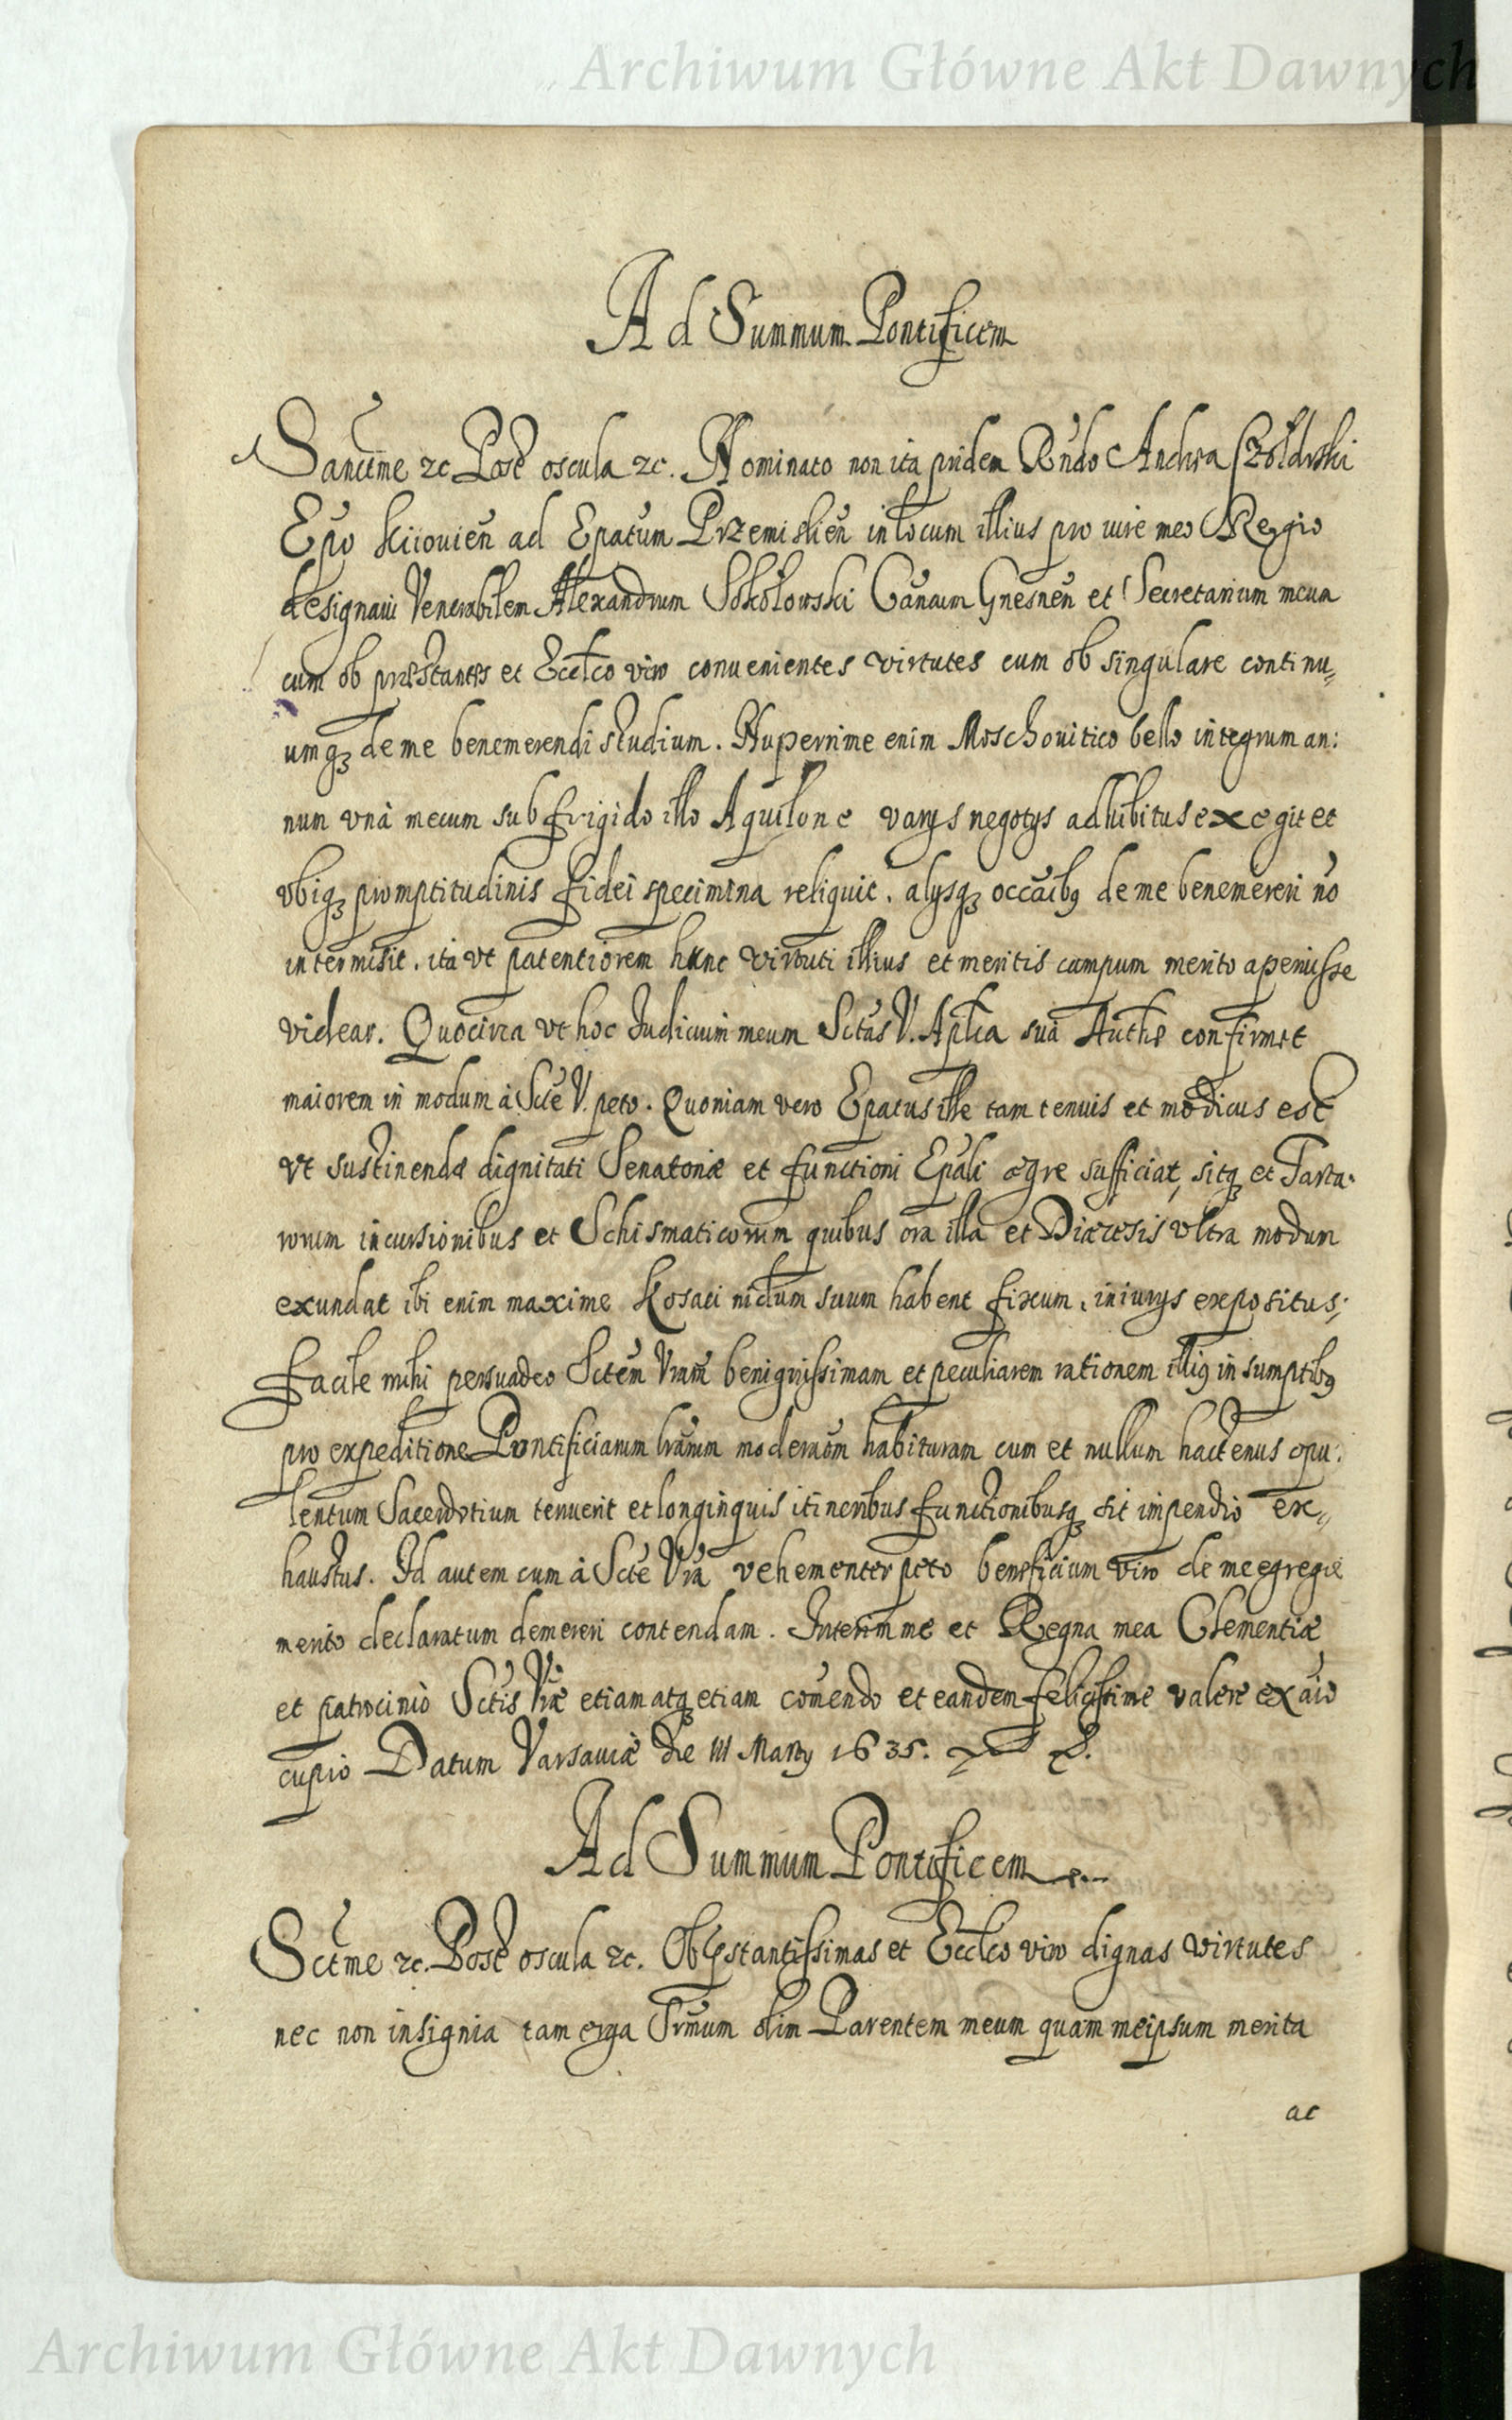 Archiwum Główne Akt Dawnych
Ad Summum Pontificem
Sanctme &c Post oscula &c. Nominato non ita pridem Rndo Andrea Szołdrski
Epo Kiiouien ad Epatum Przemislien in locum illius pro iure meo Regio
designaui Venerabilem Alexandrum Sokołowski Canam Gnesnen et Secretarium meum
cum ob præstantes et Ecclco viro conuenientes virtutes cum ob singulare continu„
umqꝫ de me benemerendi studium. Nuperrime enim Moschouitico bello integrum an:
num vnà mecum sub frigido illo Aquilone varys negotys adhibitus exegit et
vbiqꝫ promptitudinis fidei specimina reliquit. alysqꝫ occaibꝰ de me benemereri no
intermisit. ita vt patentiorem hunc virtuti illius et meritis campum merito aperuisse
videar. Quocirca vt hoc Iudicium meum Sctas V. Aplca suà Authe confirmet
maiorem in modum à Scte V. peto. Quoniam vero Epatus ille tam tenuis et modicus est
vt sustinendæ dignitati Senatoriæ et functioni Epali ægre sufficiat, sitqꝫ et Tarta.
rorum incursionibus et Schismaticorum quibus ora illa et Diæcesis vltra modum
exundat ibi enim maxime Kosaci nidum suum habent fixum. iniurys expositus;
facile mihi persuadeo Sctem Vram benignissimam et peculiarem rationem illiꝰ in sumptibꝰ
pro expeditione Pontificiarum lrarum moderaom habituram cum et nullum hactenus opu.
lentum Sacerdotium tenuerit et longinquis itineribus functionibusqꝫ sit impendio ex„
haustus. Id autem cum à Scte Vrà vehementer peto beneficium viro de me egregie
merito declaratum demereri contendam. Interim me et Regna mea Clementiæ
et patrocinio Sctis Vræ etiam atqꝫ etiam comendo et eandem felicissime valere ex aio
cupio Datum Varsauiæ die III Marty 1635.
Ad Summum Pontificem
Sctme &c. Post oscula &c. Ob pstantissimas et Ecclco viro dignas virtutes
nec non insignia tam erga Srmum olim Parentem meum quam meipsum merita
ac
Archiwum Główne Akt Dawnych